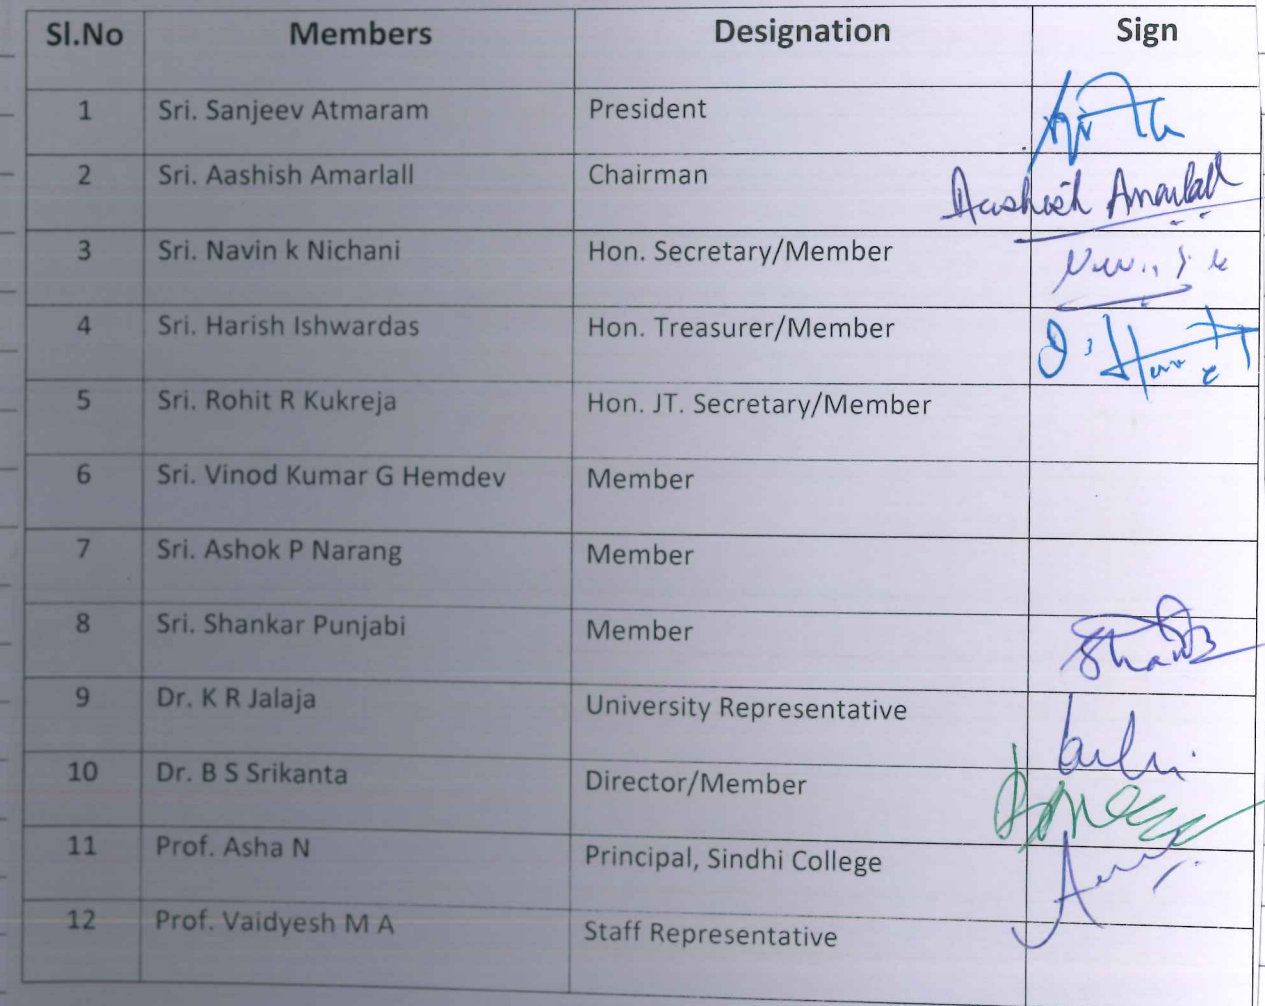 Sl.No Members Designation Sign
1 Sri. Sanjeev Atmaram President
2 Sri. Aashish Amarlall Chairman Aashish Amarlall
3 Sri. Navin k Nichani Hon. Secretary/Member
4 Sri. Harish Ishwardas Hon. Treasurer/Member
5 Sri. Rohit R Kukreja Hon. JT. Secretary/Member
6 Sri. Vinod Kumar G Hemdev Member
7 Sri. Ashok P Narang Member
8 Sri. Shankar Punjabi Member
9 Dr. K R Jalaja University Representative
10 Dr. B S Srikanta Director/Member
11 Prof. Asha N Principal, Sindhi College
12 Prof. Vaidyesh M A Staff Representative